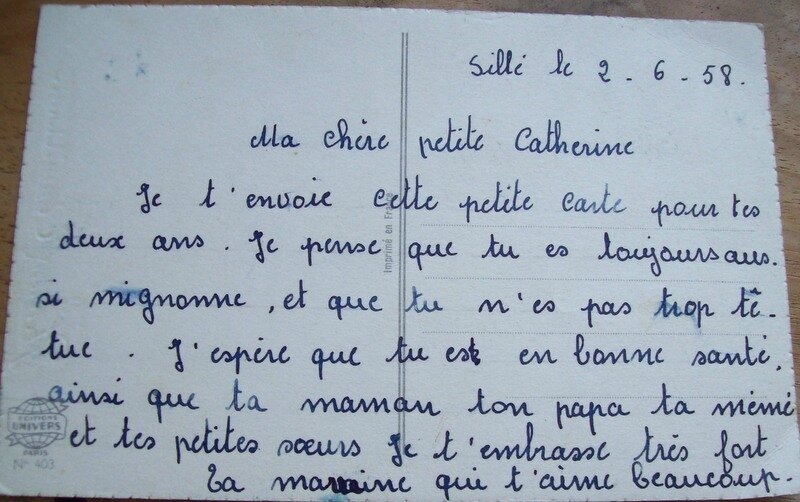 Sillé le 2 - 6 - 58.
Ma chère petite Catherine
Je t'envoie cette petite carte pour tes
deux ans. Je pense que tu es toujours aus.
si mignonne, et que tu n'es pas trop tê.
tue. J'espère que tu est en bonne santé,
ainsi que ta maman ton papa ta mémé
et tes petites sœurs Je t'embrasse très fort
Ta marraine qui t'aime beaucoup.
Imprimé en France
EDITIONS
UNIVERS
PARIS
N° 403